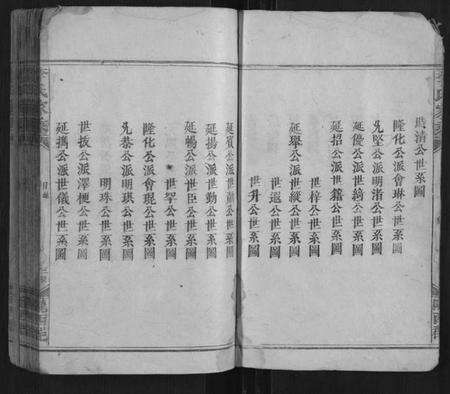 時清公世系圖
隆化公派會琳公世系圖
先堅公派明消公世系圖
延優公派世綺公世系圖
延招公派世籍公世系圖
世梓公世系圖
延舉公派世縱公世系圖
世巡公世系圖
世升公世系圖
延賓公派世公世系圖
延揚公派世勳公世系圖
延暢公派世臣公世系圖
世罕公世系圖
隆化公派會現公世系圖
先恭公派明琪公世系圖
明珠公世系圖
世拔公派澤樞公世系圖
延撝公派世儀公世系圖
目錄